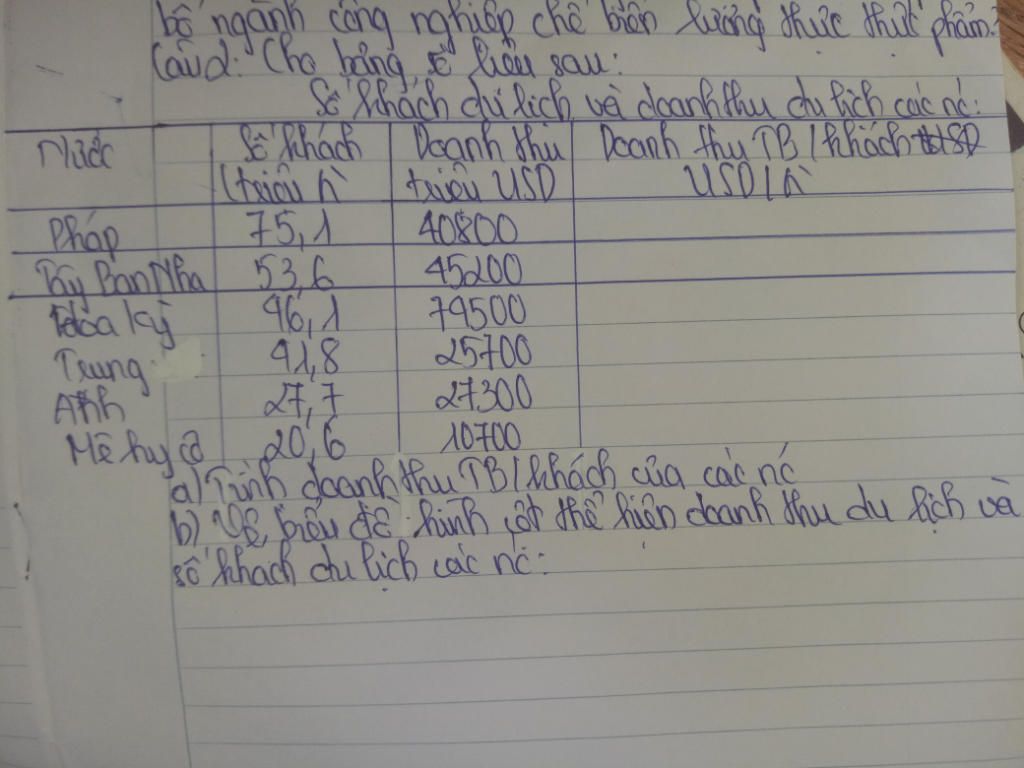 bố ngành công nghiệp chế biến lương thực thực phẩm?
Câu 2: Cho bảng số liệu sau:
Số khách du lịch và doanh thu du lịch các nc:
Nước Số khách Doanh thu Doanh thu TB/khách
(triệu n` triệu USD USD/n`
Pháp 75,1 40800
Tây Ban Nha 53,6 45200
Hoa Kỳ 46,1 74500
Trung 41,8 25700
Anh 27,7 27300
Mê hy cô 20,6 10700
a) Tính doanh thu TB/khách của các nc
b) Vẽ biểu đồ hình cột thể hiện doanh thu du lịch và
số khach du lịch các nc: